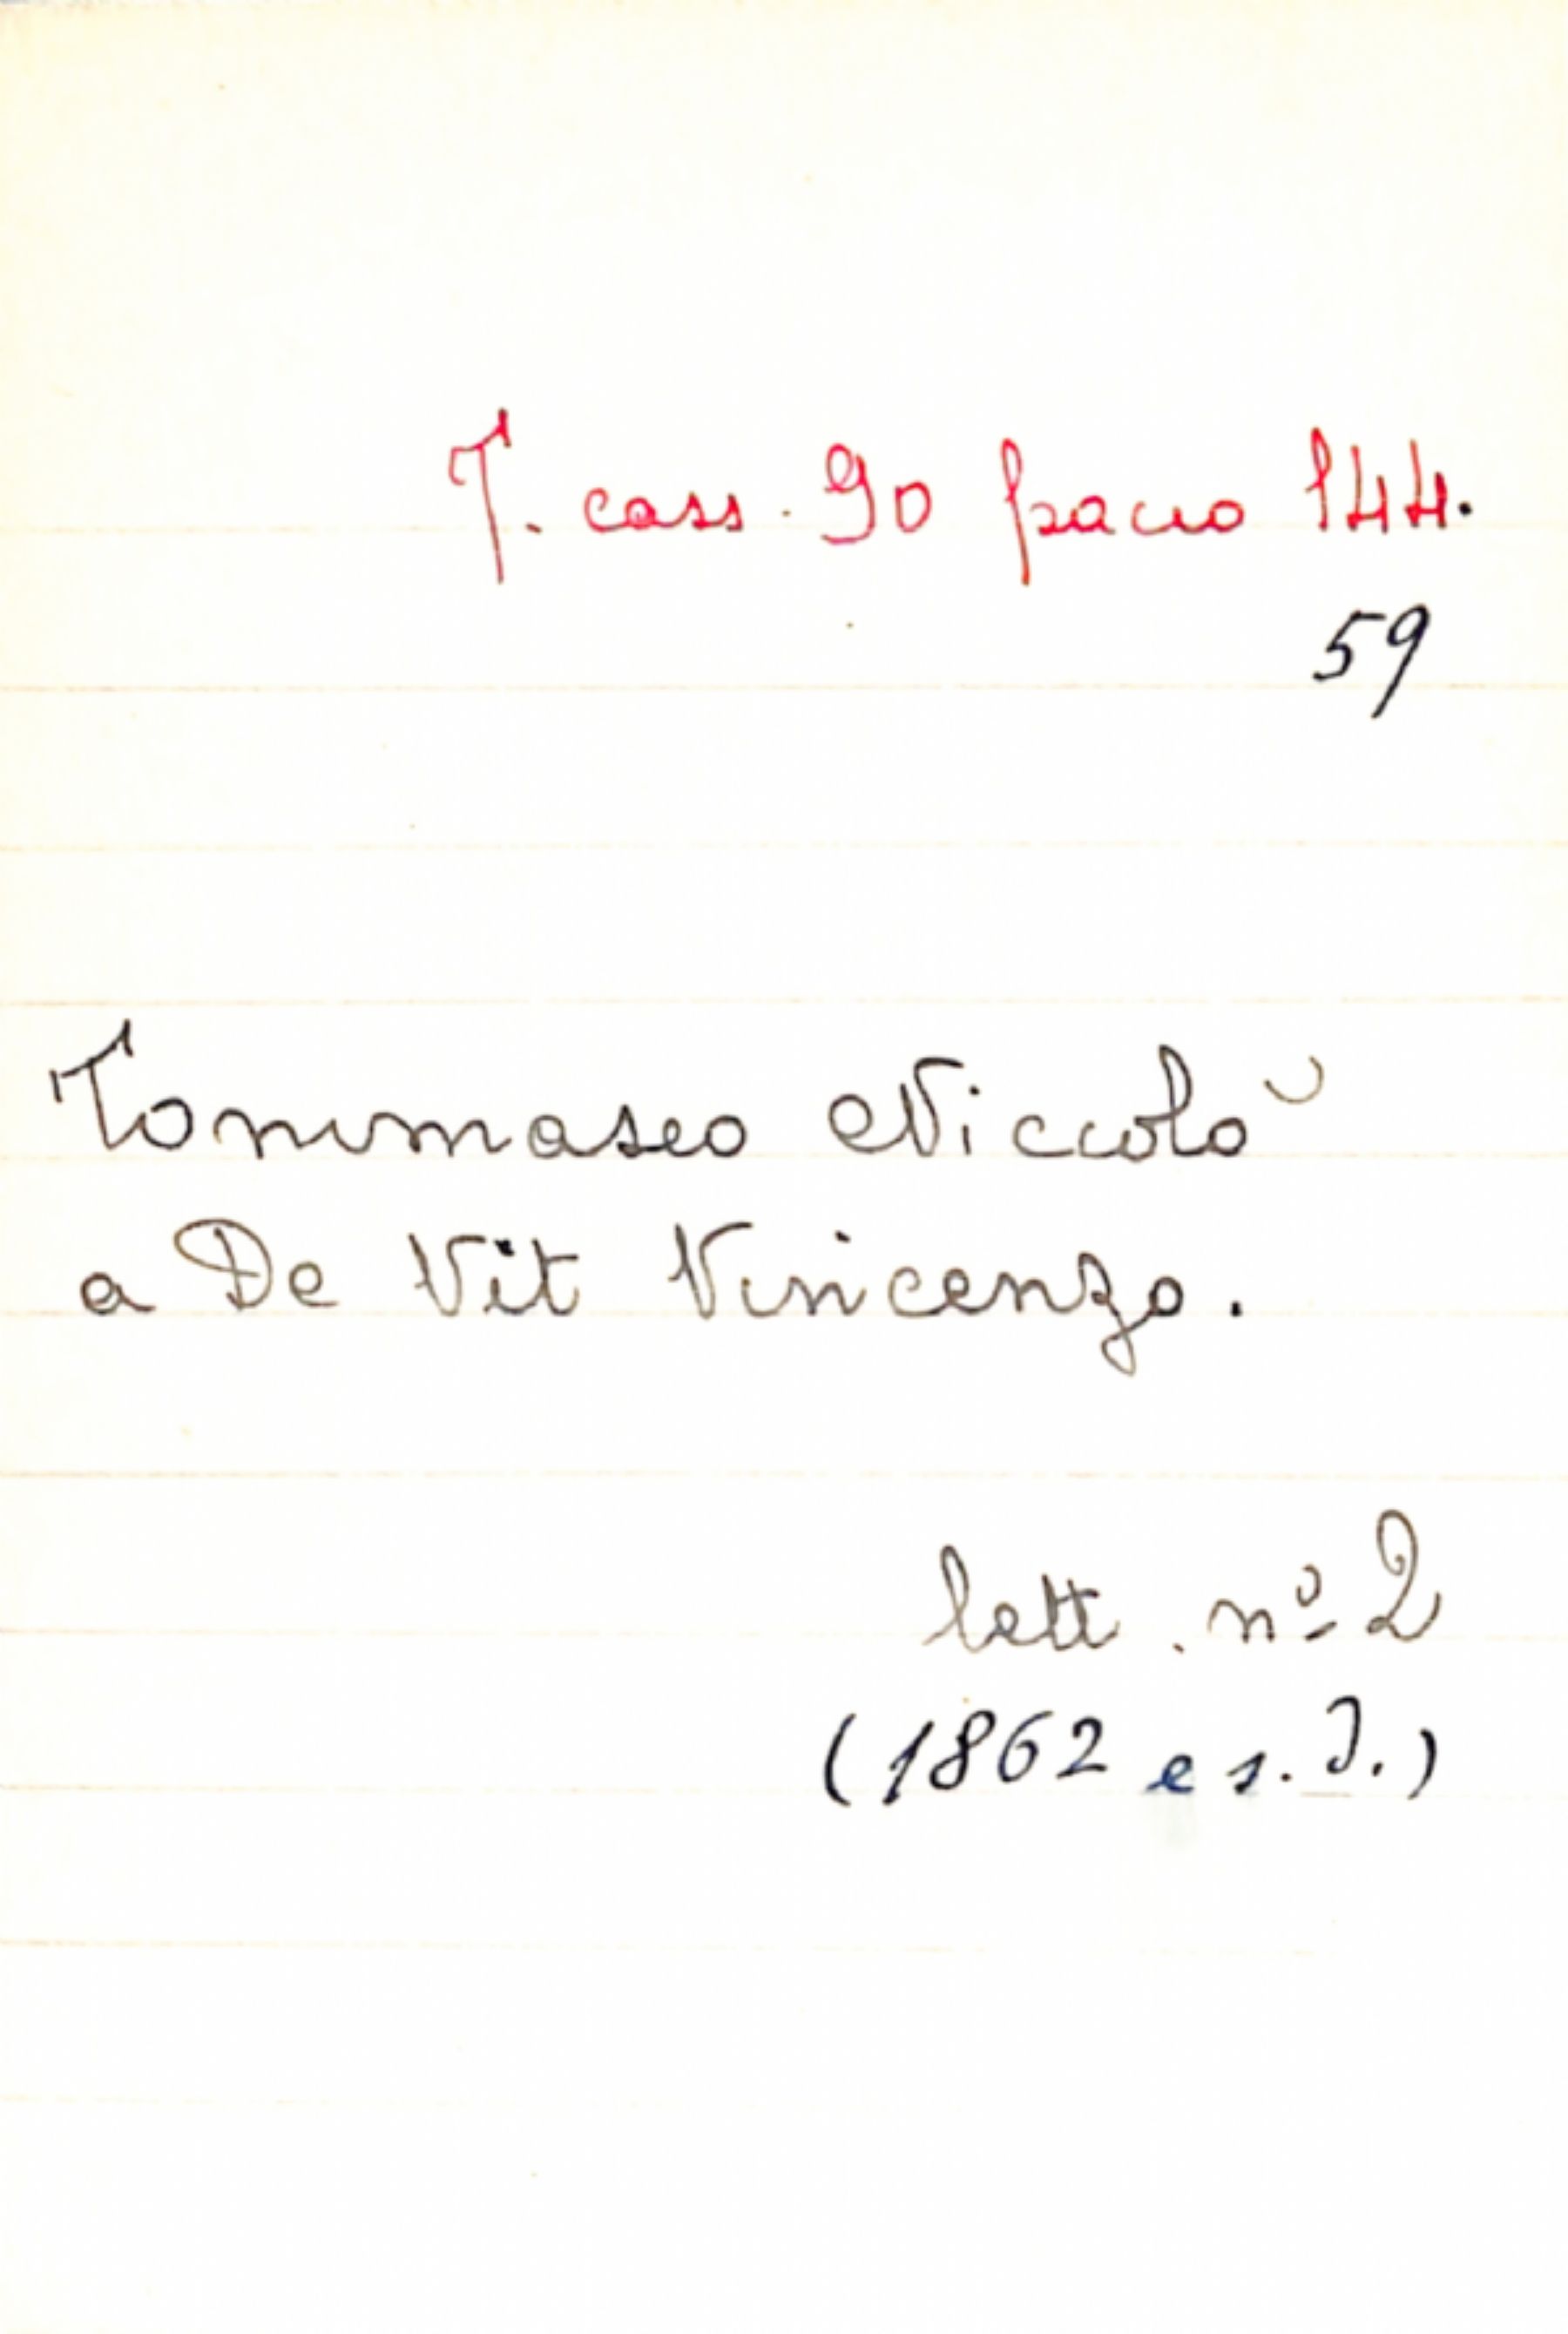 T. cass. 90 pacco 144.
59
Tommaseo Niccolò
a De Vit Vincenzo.
lett. nº 2
(1862 e s. d.)